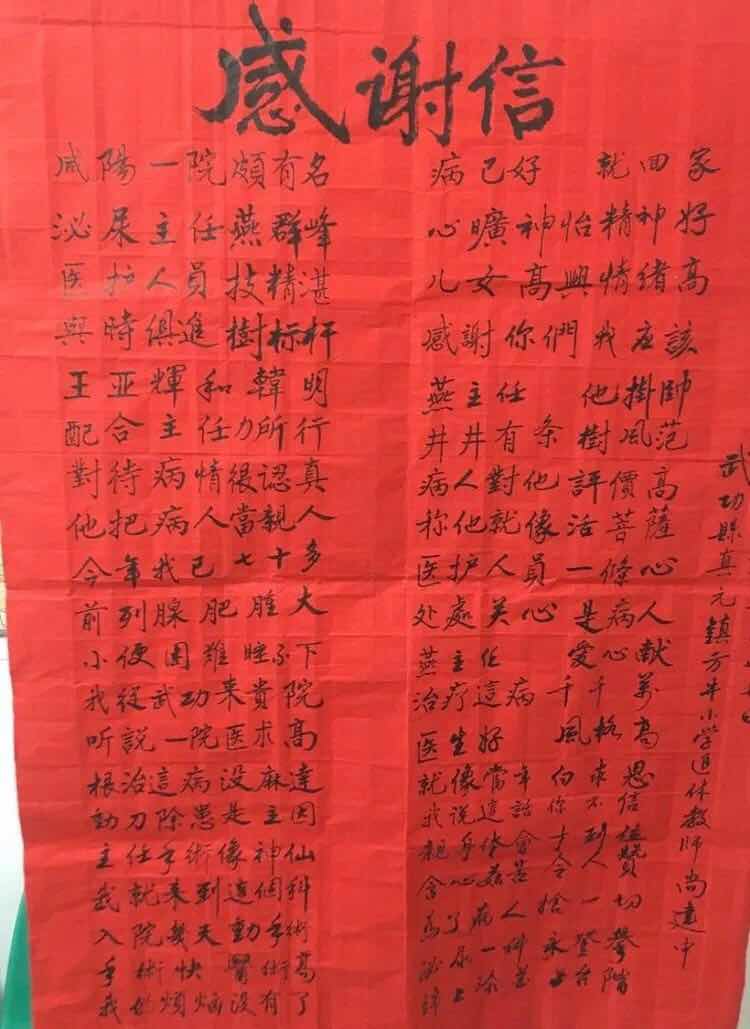 感谢信
咸陽一院頗有名
泌尿主任燕群峰
医护人員技精湛
與時俱進樹标杆
王亚輝和韓明
配合主任力所行
對待病情很認真
他把病人當親人
今年我已七十多
前列腺肥腫大
小便困難睡不下
我從武功来貴院
听說一院医求高
根治這病没麻達
动刀除患是主因
主任手術像神仙
我就来到這個科
入院幾天動手術
手術快醫術高
我的煩恼没有了
病已好 就回家
心曠神怡精神好
儿女高興情绪高
感謝你們我应該
燕主任 他掛帥
井井有条他樹风范
病人對他評價高
称他就像活菩薩
医护人員一條心
处處关心是病人
燕主任爱心献
治疗這病千千萬
医生好風格高
就像當年白求恩
我說這話你不信
親身体会才到位
含心茹苦令人贊
為了病人搶一切
泌尿科永
上
武功縣真元鎮方丰小学退休教師尚建中